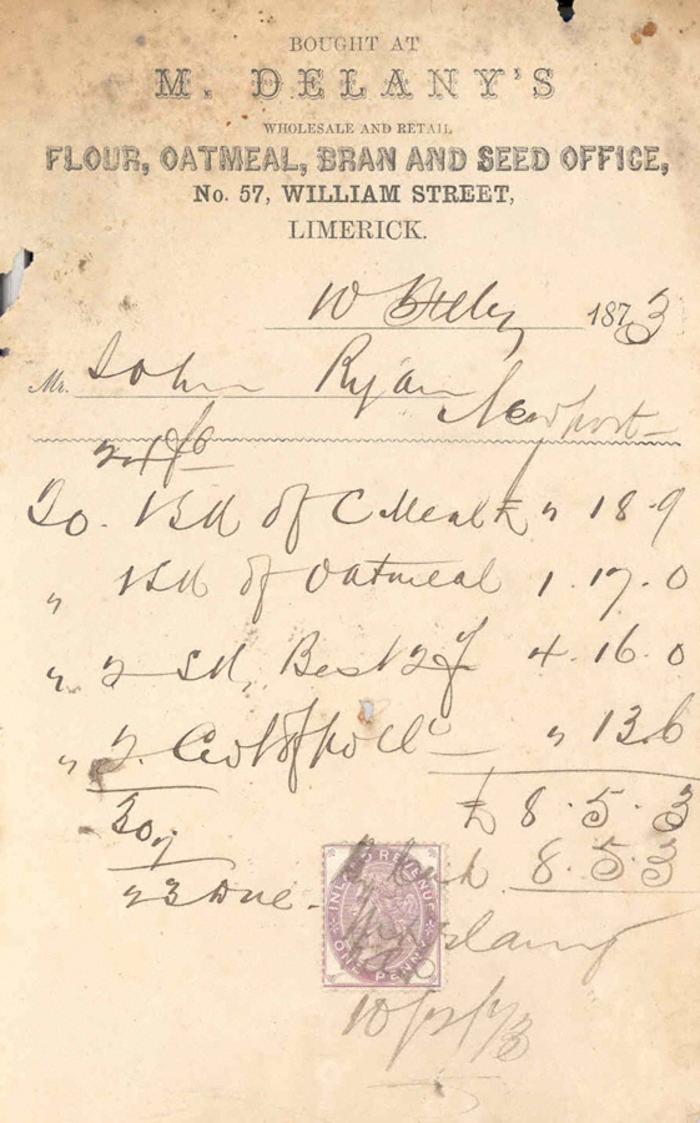 BOUGHT AT
M. DELANY'S
WHOLESALE AND RETAIL
FLOUR, OATMEAL, BRAN AND SEED OFFICE,
No. 57, WILLIAM STREET,
LIMERICK.
10 1873
Mr. John Ryan Newport
To. 1 Bd of C Meal £ " 18.9
" 1 Bd of Oatmeal 1.17.0
" 2 Sd, Best 2 4.16.0
" 2. Cwt of " 13.6
£ 8.5.3
8.5.3
Due.
INLAND REVENUE
ONE PENNY